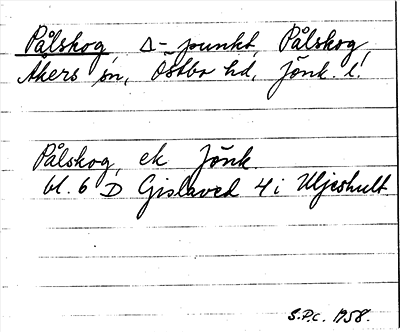 Pålskog, Δ-punkt, Pålskog,
Åkers sn, Östbo hd, Jönk. l.
Pålskog, ek Jönk.
bl. 6 D Gislaved 4i Uljeshult
S.P.C. 1958.